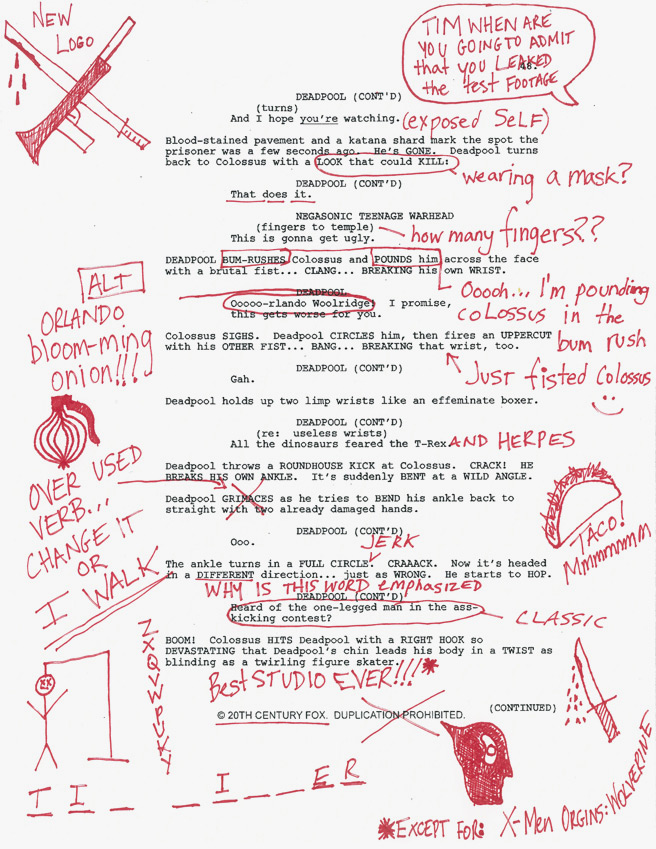 NEW
LOGO
TIM WHEN ARE
YOU GOING TO ADMIT
that you LEAKED
the test FOOTAGE
48.
DEADPOOL (CONT'D)
(turns)
And I hope you're watching. (exposed SELF)
Blood-stained pavement and a katana shard mark the spot the
prisoner was a few seconds ago. He's GONE. Deadpool turns
back to Colossus with a LOOK that could KILL:
wearing a mask?
DEADPOOL (CONT'D)
That does it.
NEGASONIC TEENAGE WARHEAD
(fingers to temple)
This is gonna get ugly.
how many fingers??
DEADPOOL BUM-RUSHES Colossus and POUNDS him across the face
with a brutal fist... CLANG... BREAKING his own WRIST.
Ooooh... I'm pounding
COLOSSUS in the
bum rush
ALT
ORLANDO
bloom-ming
onion!!!
DEADPOOL
Ooooo-rlando Woolridge! I promise,
this gets worse for you.
Colossus SIGHS. Deadpool CIRCLES him, then fires an UPPERCUT
with his OTHER FIST... BANG... BREAKING that wrist, too.
Just fisted Colossus
DEADPOOL (CONT'D)
Gah.
Deadpool holds up two limp wrists like an effeminate boxer.
DEADPOOL (CONT'D)
(re: useless wrists)
All the dinosaurs feared the T-Rex AND HERPES
Deadpool throws a ROUNDHOUSE KICK at Colossus. CRACK! HE
BREAKS HIS OWN ANKLE. It's suddenly BENT at a WILD ANGLE.
OVER USED
VERB...
CHANGE IT
OR
I WALK
Deadpool GRIMACES as he tries to BEND his ankle back to
straight with two already damaged hands.
TACO!
Mmmmmmm
DEADPOOL (CONT'D)
Ooo.
JERK
The ankle turns in a FULL CIRCLE. CRAAACK. Now it's headed
in a DIFFERENT direction... just as WRONG. He starts to HOP.
WHY IS THIS WORD emphasized
DEADPOOL (CONT'D)
Heard of the one-legged man in the ass-
kicking contest?
CLASSIC
BOOM! Colossus HITS Deadpool with a RIGHT HOOK so
DEVASTATING that Deadpool's chin leads his body in a TWIST as
blinding as a twirling figure skater.
Best STUDIO EVER!!!*
(CONTINUED)
© 20TH CENTURY FOX. DUPLICATION PROHIBITED.
T I _ _ I _ _ E R
*EXCEPT FOR: X-Men Orgins: WOLVERINE